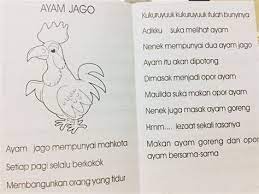 AYAM JAGO
Ayam jago mempunyai mahkota
Setiap pagi selalu berkokok
Membangunkan orang yang tidur
Kukuruyuuk kukuruyuuk itulah bunyinya
Adikku suka melihat ayam
Nenek mempunyai dua ayam jago
Ayam itu akan dipotong
Dimasak menjadi opor ayam
Maulida suka makan opor ayam
Nenek juga masak ayam goreng
Hmm.... lezaat sekali rasanya
Makan ayam goreng dan opor
ayam bersama-sama